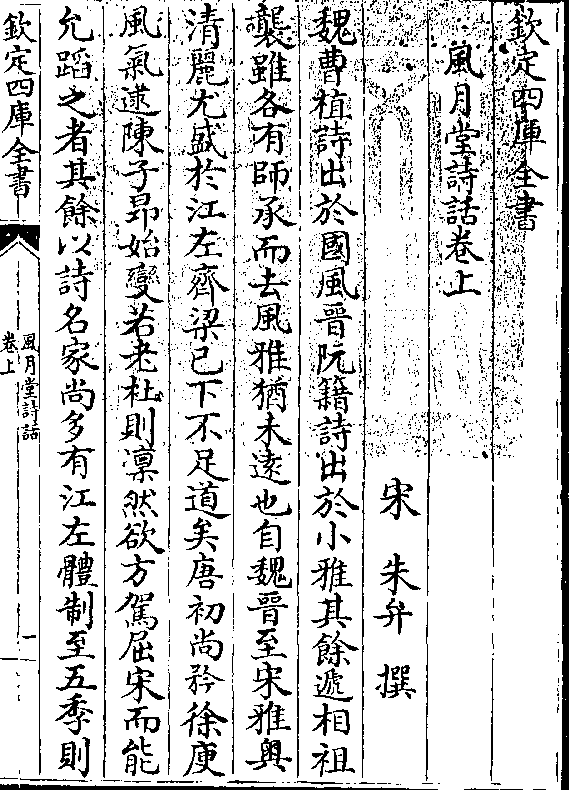 欽定四庫全書
風月堂詩話卷上
宋 朱弁 撰
魏曹植詩出於國風晉阮籍詩出於小雅其餘遞相祖
襲雖各有師承而去風雅猶未逺也自魏晉至宋雅奥
清麗尤盛於江左齊梁已下不足道矣唐初尚矜徐庾
風氣逮陳子昻始變若老杜則凛然欲方駕屈宋而能
允蹈之者其餘以詩名家尚多有江左體制至五季則
欽定四庫全書
風月堂詩話
卷上
一